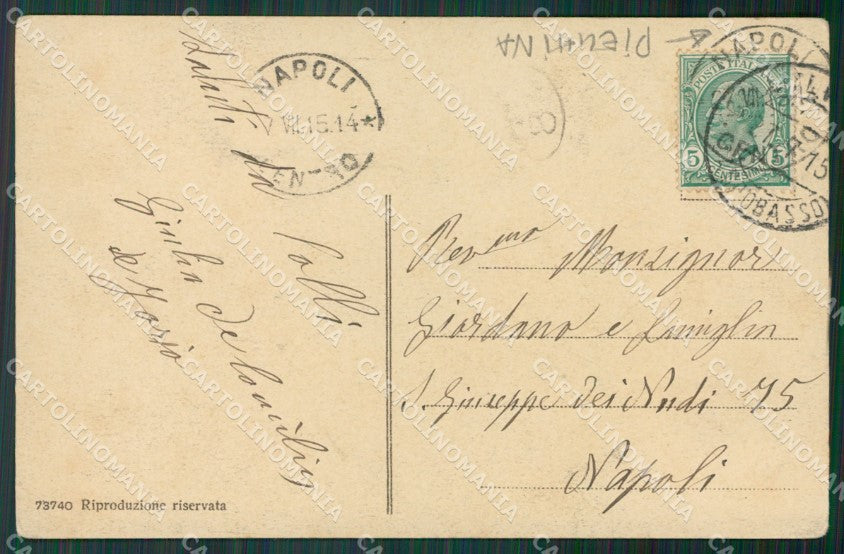 PIEDIMA
NAPOLI
7 VII.15.14*
CENTRO
NAPOLI
OBASSO
POSTE ITALIANE
5 CENTESIMI 5
8
Saluti da
Colli
Giulia de
de Iorio
Rev.mo Monsignor
Giordano e famiglia
S. Giuseppe dei Nudi 75
Napoli
73740 Riproduzione riservata
CARTOLINOMANIA